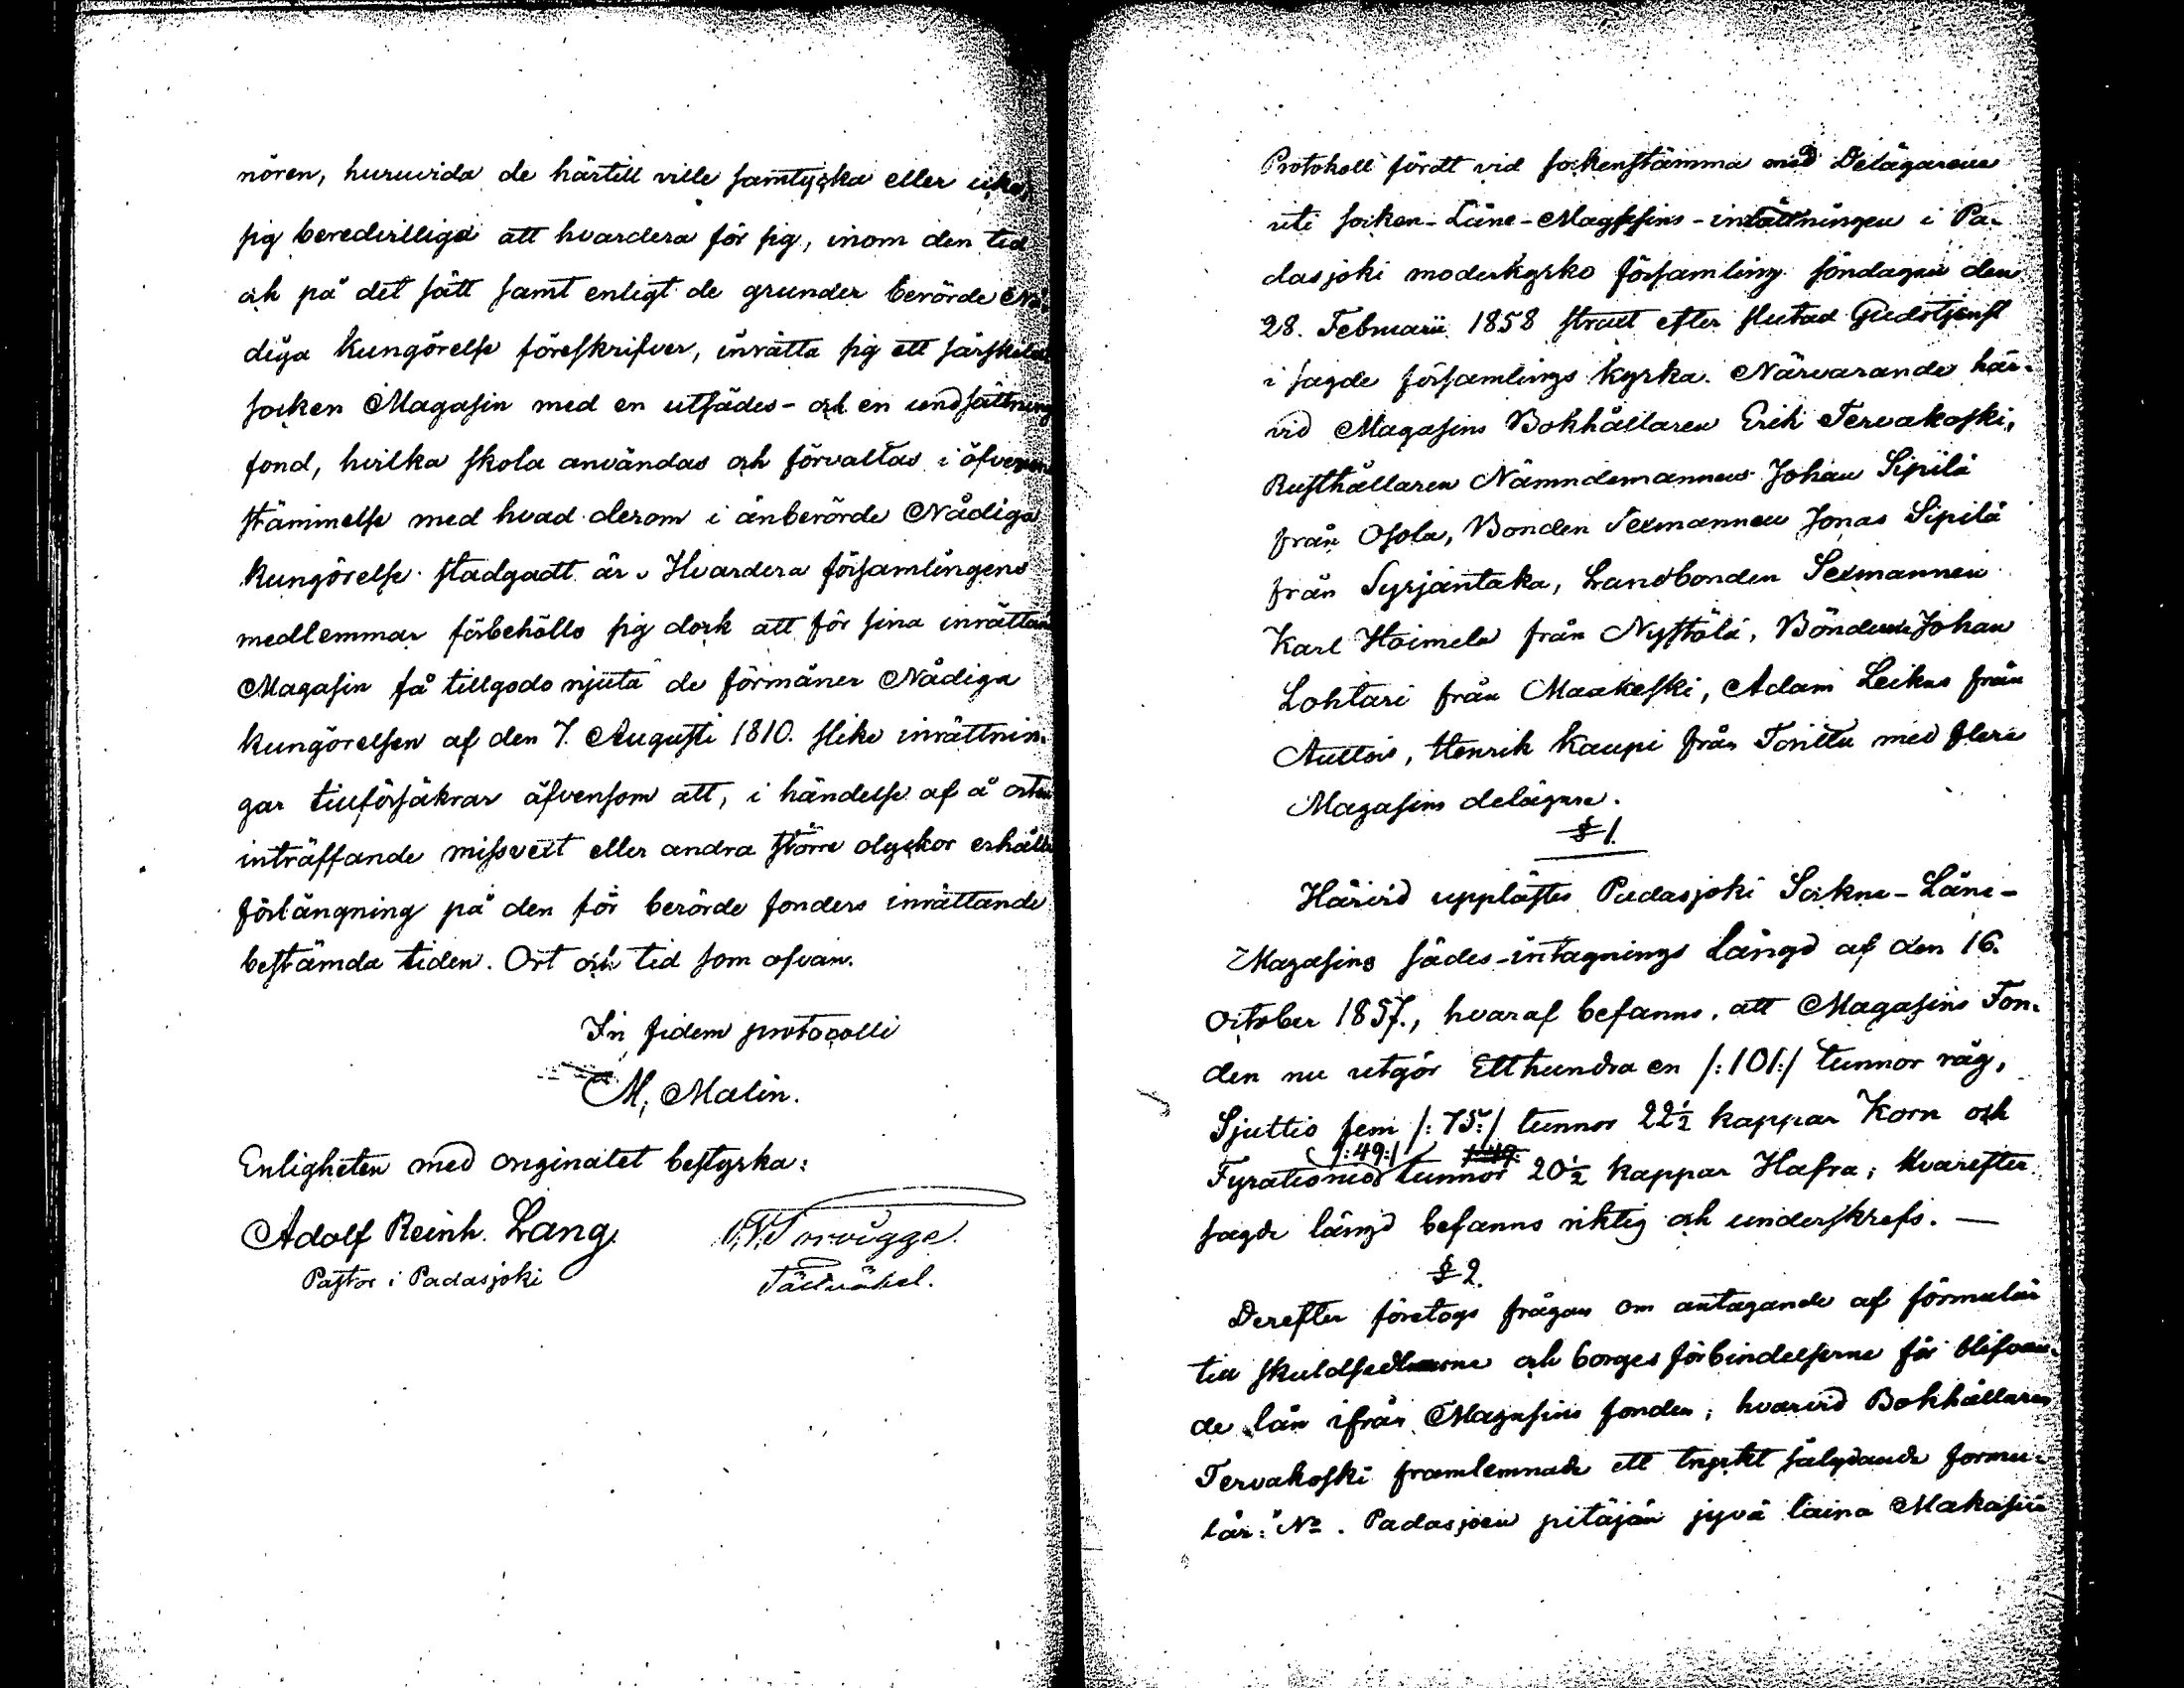 nören, huruvida de härtill ville samtycka eller icke,
sig beredvilliga att hvardera för sig, inom den tid
och på det sätt samt enligt de grunder berörde Nå-
diga Kungörelse föreskrifver, inrätta sig ett särskildt
socken Magasin med en utsädes- och en undsättnings
fond, hvilka skola användas och förvaltas i öfverens
stämmelse med hvad derom i änberörde Nådiga
Kungörelse stadgadt är. Hvardera församlingens
medlemmar förbehöllo sig dock att för sina inrättan
Magasin få tillgodo njuta de förmåner Nådiga
kungörelsen af den 7. Augusti 1810. slike inrättnin-
gar tillförsäkrar äfvensom att, i händelse af å orten
inträffande missvext eller andra större olyckor erhålla
förlängning på den för berörde fonders inrättande
bestämda tiden. Ort och tid som ofvan.
In fidem protocolli
M. Malin.
Enligheten med originalet bestyrka:
Adolf Reinh. Lang.
Pastor i Padasjoki
Protokoll fördt vid sockenstämma med Delägarene
uti socken-Låne-Magasins-inrättningen i Pa-
dasjoki moderkyrko församling söndagen den
28. Februarii 1858 straxt efter slutad Gudstjenst
i sagde församlings kyrka. Närvarande här-
vid Magasins Bokhållaren Erik Tervakoski,
Rusthållaren Nämndemannen Johan Sipilä
från Osola, Bonden Sexmannen Jonas Sipilä
från Syrjäntaka, Landbonden Sexmannen
Karl Hoimela från Nystölä, Bönderne Johan
Lohtari från Maakeski, Adam Leikas från
Auttois, Henrik Kaupi från Torittu med flere
Magasins delägare.
§ 1.
Härvid upplästes Padasjoki Sockne-Låne-
Magasins sädes-intagnings Längd af den 16.
October 1857., hvaraf befanns, att Magasins Fon-
den nu utgör Etthundra en /:101:/ tunnor råg,
Sjuttio fem /:75:/ tunnor 22½ kappar Korn och
Fyrationio /:49:/ tunnor 20½ kappar Hafra; hvarefter
sagde längd befanns riktig och underskrefs. —
§ 2.
Derefter företogs frågan om antagande af formulär
till skuldsedlarne och borgesförbindelserne för blifvan-
de lån ifrån Magasins fonden; hvarvid Bokhållaren
Tervakoski framlemnade ett tryckt sålydande formu-
lär: "No. Padasjoen pitäjän jyvä laina Makasin